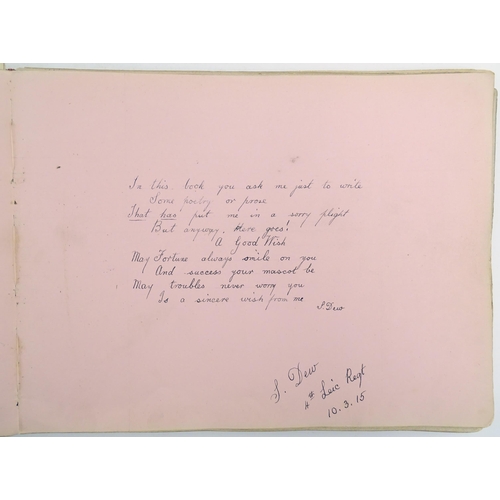 In this book you ask me just to write
Some poetry or prose
That has put me in a sorry plight
But anyway. Here goes!
A Good Wish
May Fortune always smile on you
And success your mascot be
May troubles never worry you
Is a sincere wish from me
S. Dew
S. Dew
4th Leic Regt
10.3.15